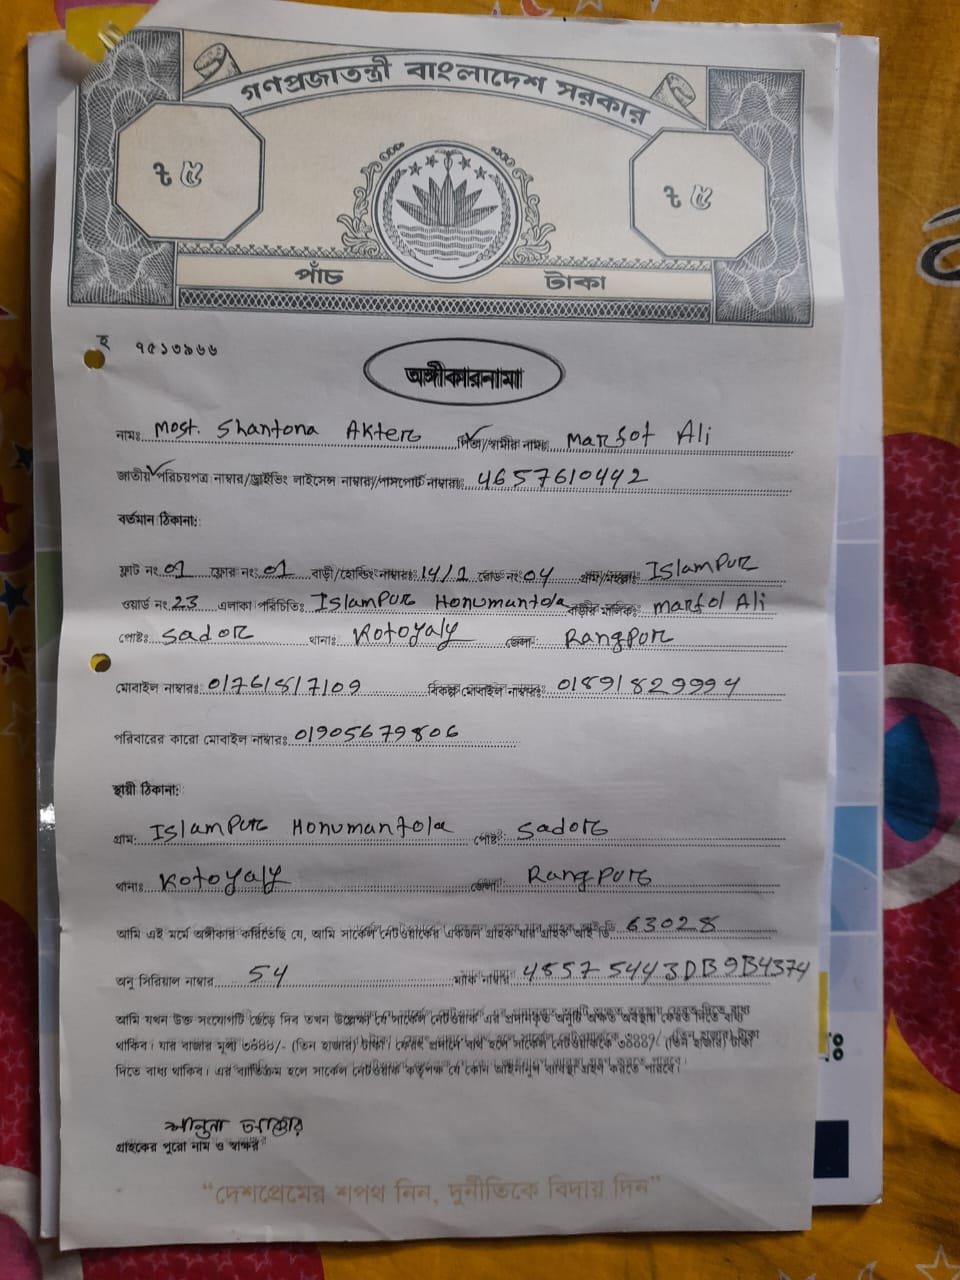 গণপ্রজাতন্ত্রী বাংলাদেশ সরকার
৳ ৫ ৳ ৫
পাঁচ টাকা
হ ৭৫১৩৯৬৬
অঙ্গীকারনামা
নামঃ Most. Shantona Akter পিতা/স্বামীর নামঃ Marfot Ali
জাতীয় পরিচয়পত্র নাম্বার/ড্রাইভিং লাইসেন্স নাম্বার/পাসপোর্ট নাম্বারঃ 4657610442
বর্তমান ঠিকানা:
ফ্লাট নং 01 ফ্লোর নং 01 বাড়ী/হোল্ডিং নাম্বারঃ 14/1 রোড নং 04 গ্রাম/মহল্লাঃ Islampur
ওয়ার্ড নং 23 এলাকা পরিচিতিঃ Islampur Honumantola বাড়ীর মালিকঃ Marfol Ali
পোষ্টঃ Sador থানাঃ Kotoyaly জেলা: Rangpur
মোবাইল নাম্বারঃ 01761817109 বিকল্প মোবাইল নাম্বারঃ 01891829994
পরিবারের কারো মোবাইল নাম্বারঃ 01905679806
স্থায়ী ঠিকানা:
গ্রাম: Islampur Honumantola পোষ্ট: Sador
থানাঃ Kotoyaly জেলা: Rangpur
আমি এই মর্মে অঙ্গীকার করিতেছি যে, আমি সার্কেল নেটওয়ার্কের একজন গ্রাহক যার গ্রাহক আই ডি 63028
অনু সিরিয়াল নাম্বার 54 ম্যাক নাম্বার 485754443DB9B4374
আমি যখন উক্ত সংযোগটি ছেড়ে দিব তখন উল্লেখ্য যে সার্কেল নেটওয়ার্ক এর প্রদানকৃত অনুটি অক্ষত অবস্থায় ফেরত দিতে বাধ্য
থাকিব। যার বাজার মূল্য (তিন হাজার) টাকা। ফেরত প্রদানে ব্যর্থ হলে সার্কেল নেটওয়ার্ককে (তিন হাজার) টাকা
দিতে বাধ্য থাকিব। এর ব্যতিক্রম হলে সার্কেল নেটওয়ার্ক কর্তৃপক্ষ যে কোন আইনানুগ ব্যবস্থা গ্রহণ করতে পারবে।
আক্তার
গ্রাহকের পুরো নাম ও স্বাক্ষর
“দেশপ্রেমের শপথ নিন, দুর্নীতিকে বিদায় দিন”